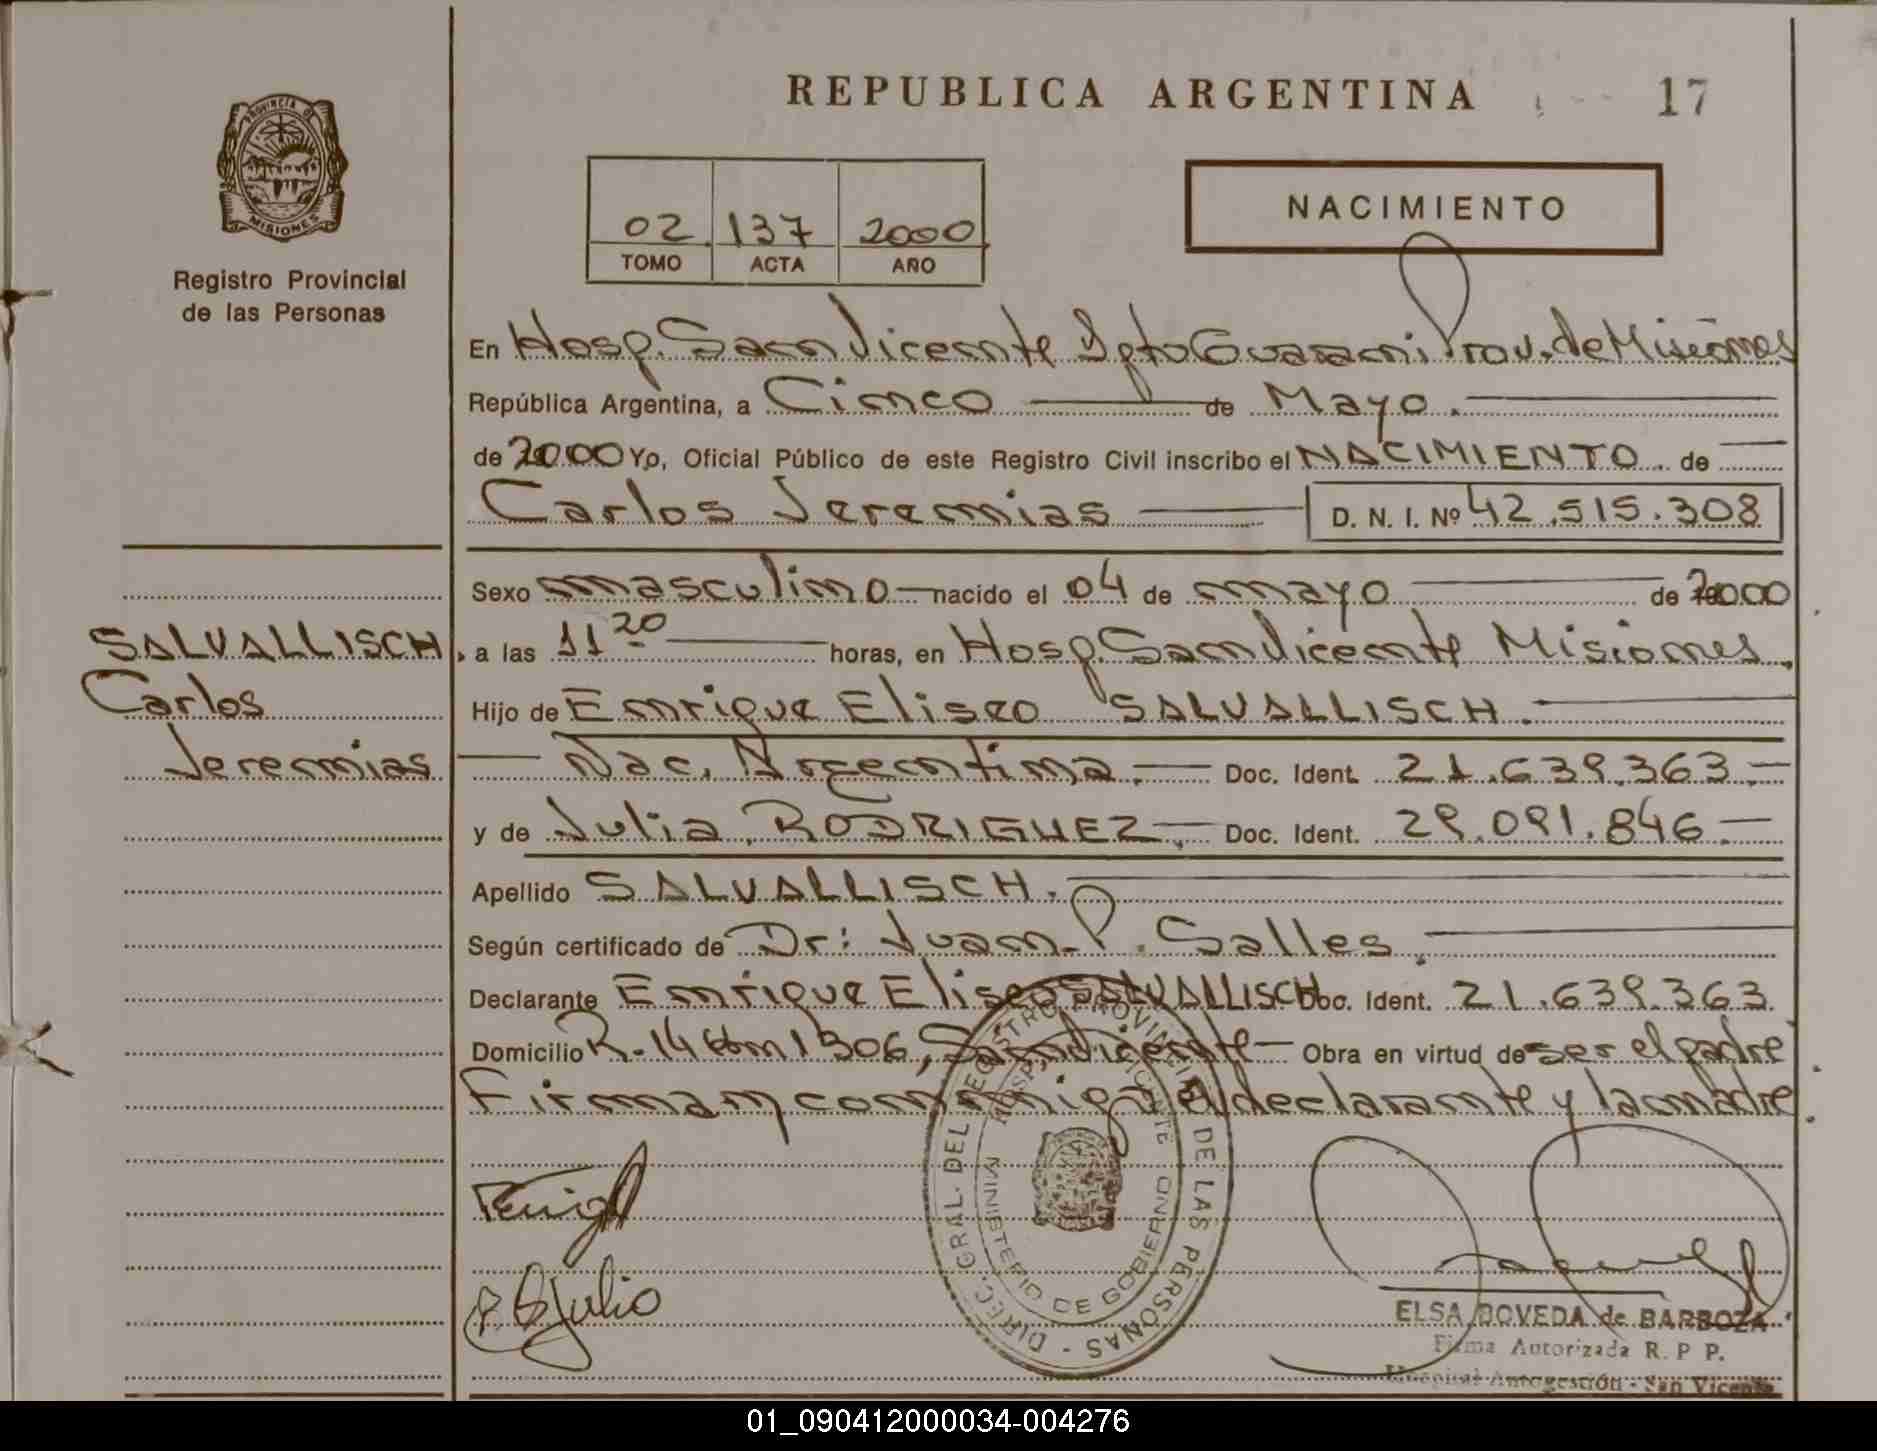 REPUBLICA ARGENTINA
17
PROVINCIA DE
MISIONES
Registro Provincial
de las Personas
02 137 2000
TOMO ACTA AÑO
NACIMIENTO
En Hosp. San Vicente Dpto Guarani Prov. de Misiones
República Argentina, a Cinco de Mayo.
de 2000 Yo, Oficial Público de este Registro Civil inscribo el NACIMIENTO. de
Carlos Jeremias D. N. I. Nº 42.515.308
Sexo masculino nacido el 04 de mayo de 2000
a las 11 20 horas, en Hosp. San Vicente Misiones.
Hijo de Enrique Eliseo SALVALLISCH.
Nac. Argentina. Doc. Ident. 21.639.363
y de Julia RODRIGUEZ Doc. Ident. 29.091.846
Apellido SALVALLISCH.
Según certificado de Dr: Juan P. Salles
Declarante Enrique Eliseo SALVALLISCH Doc. Ident. 21.639.363
Domicilio R. 14 Km 1306, San Vicente Obra en virtud de ser el padre
Firman conmigo el declarante y la madre
SALVALLISCH
Carlos
Jeremias
DIREC. GRAL. DEL REGISTRO PROVINCIAL DE LAS PERSONAS
HOSP. VICENTE
MINISTERIO DE GOBIERNO
ELSA BOVEDA de BARBOZA
Firma Autorizada R. P P.
Hospital Autogestión - San Vicente
01_090412000034-004276